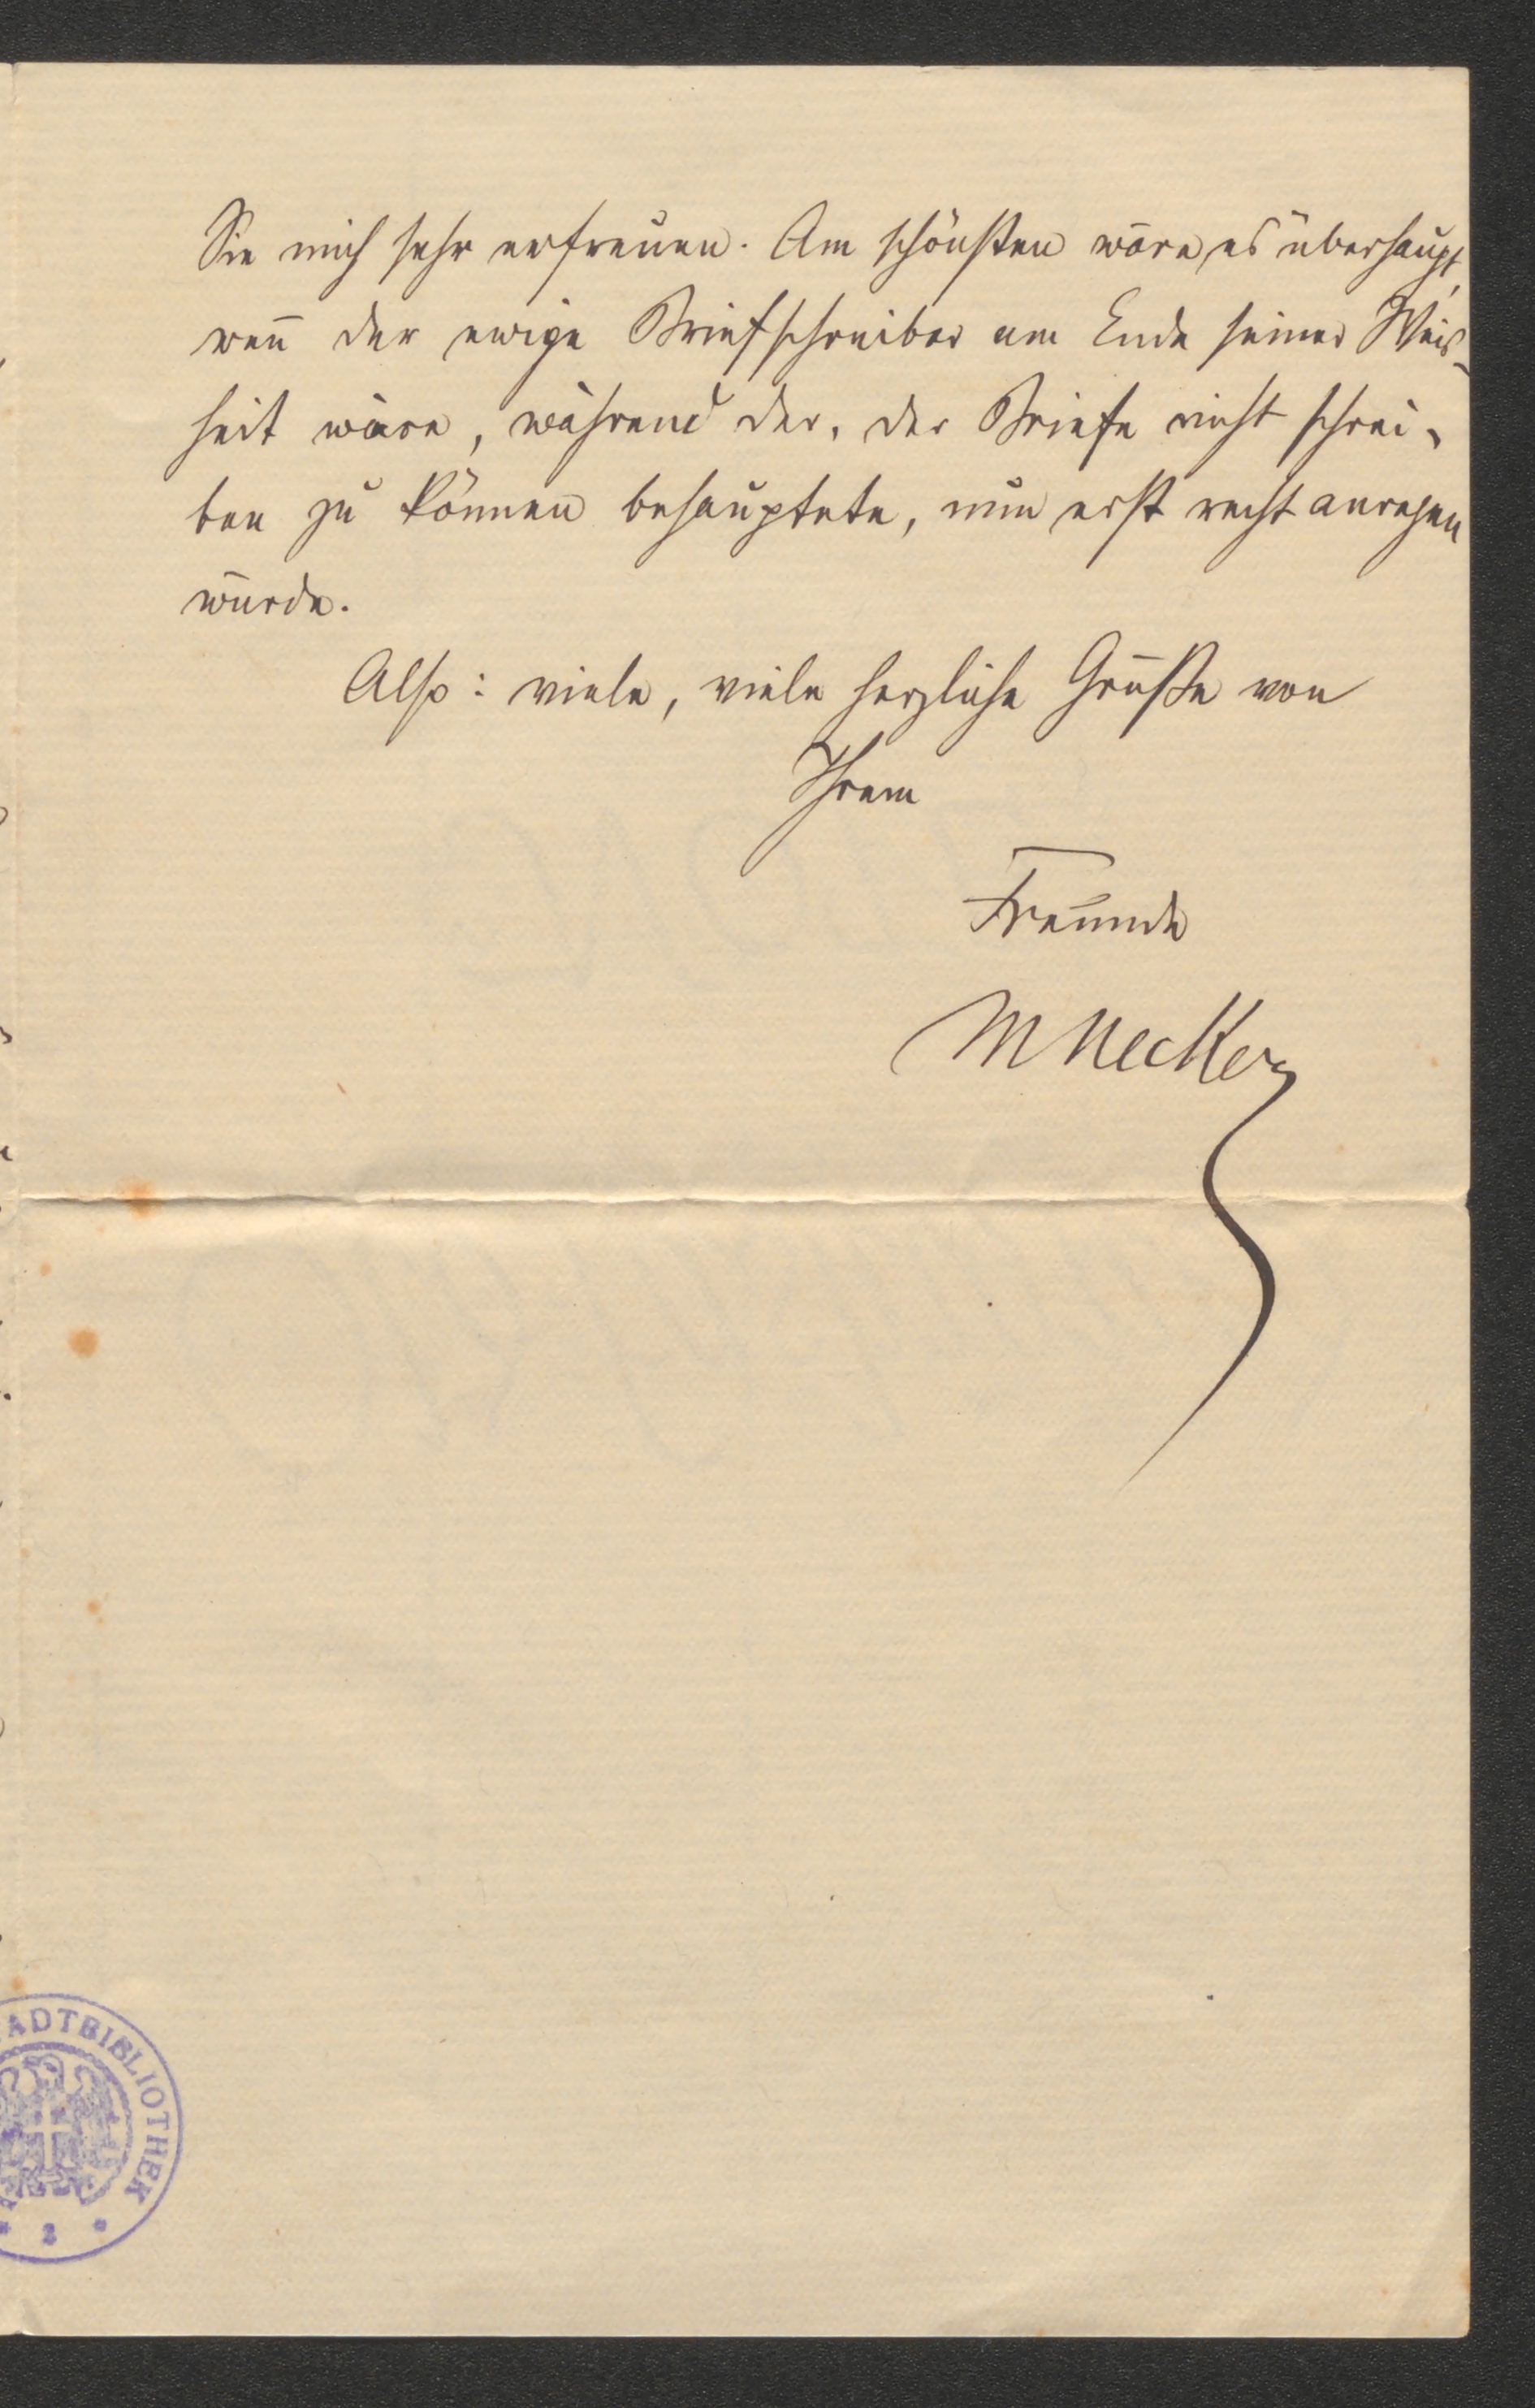 Sie mich sehr erfreuen. Am schönsten wäre es überhaupt,
wen̅ der ewige Briefschreiber am Ende seiner Weis-
heit wäre, während der, der Briefe nicht schrei-
ben zu können behauptete, nun erst recht anregen
würde.
Also: viele, viele herzliche Grüße von
Ihrem
Freunde
MNecker
ADTBIBLIOTHEK
* 2 *